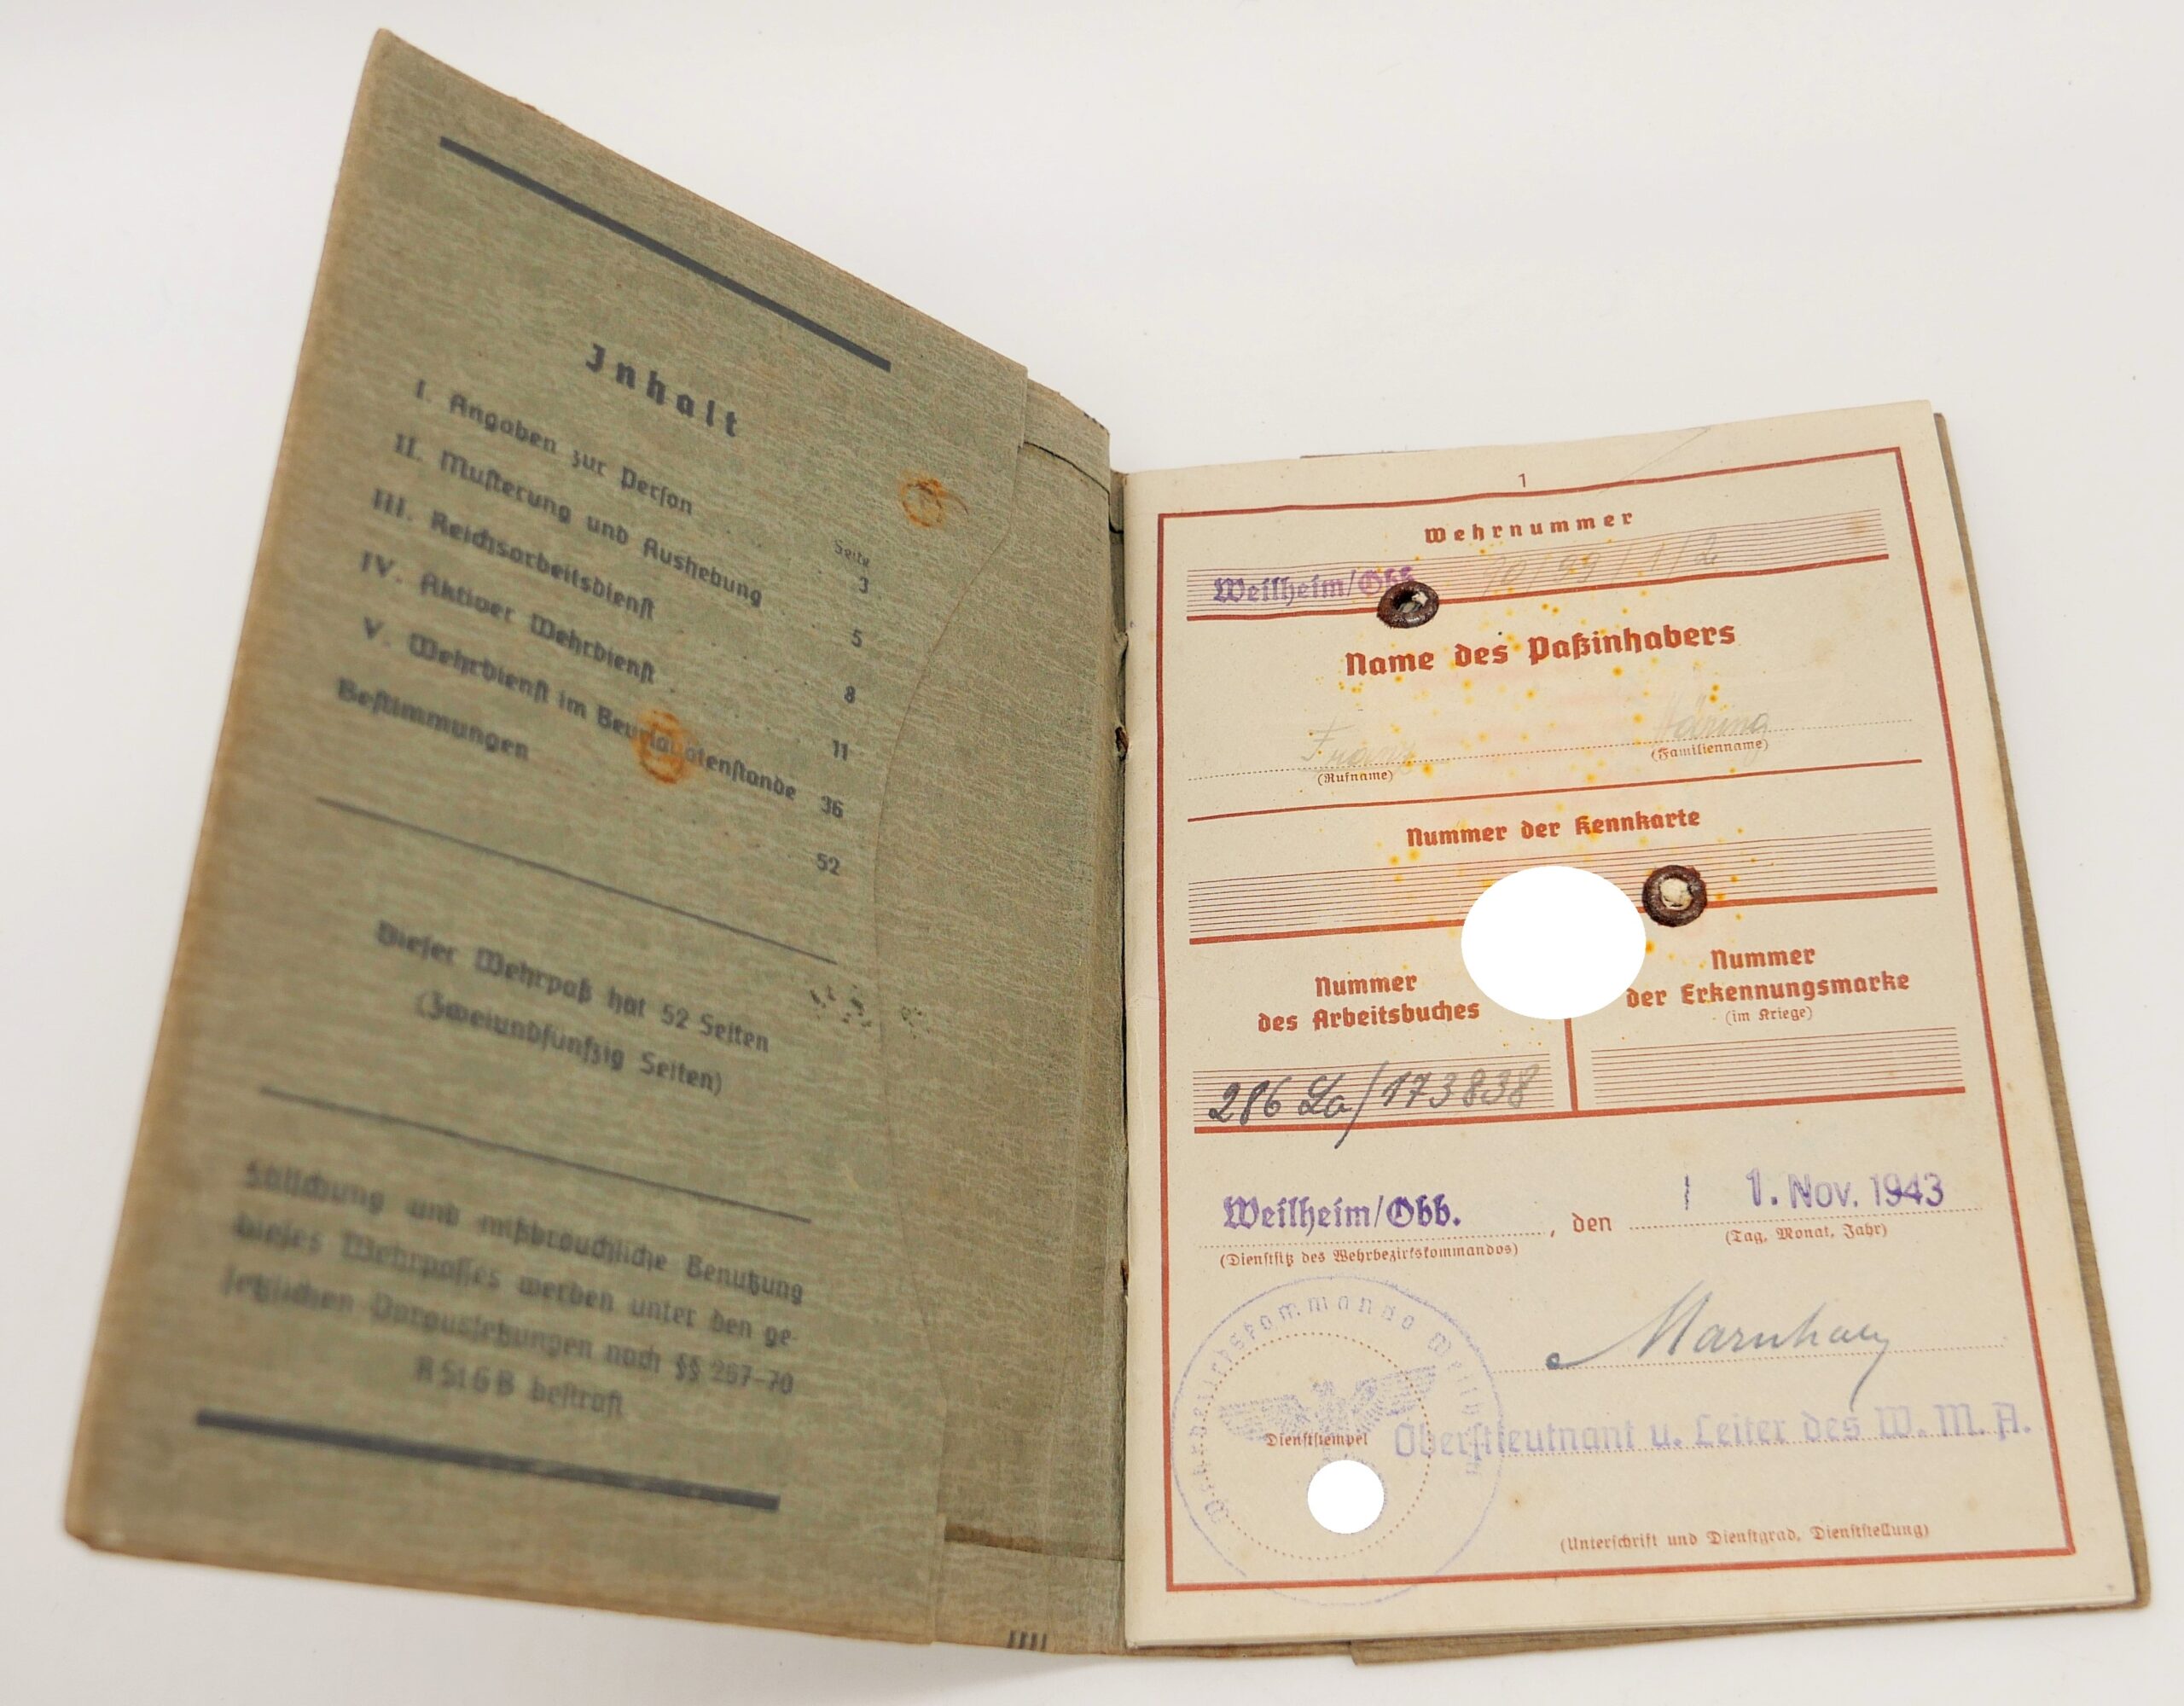 Inhalt
Seite
I. Angaben zur Person 3
II. Musterung und Aushebung 5
III. Reichsarbeitsdienst 8
IV. Aktiver Wehrdienst 11
V. Wehrdienst im Beurlaubtenstande 36
Bestimmungen 52
Dieser Wehrpaß hat 52 Seiten
(Zweiundfünfzig Seiten)
Fälschung und mißbräuchliche Benutzung
dieses Wehrpasses werden unter den ge-
setzlichen Voraussetzungen nach §§ 267–70
RStGB bestraft
1
Wehrnummer
Weilheim/Obb.
Name des Paßinhabers
Franz
(Rufname)
(Familienname)
Nummer der Kennkarte
Nummer
des Arbeitsbuches
Nummer
der Erkennungsmarke
(im Kriege)
286 La/173838
Weilheim/Obb., den 1. Nov. 1943
(Dienstsitz des Wehrbezirkskommandos)
(Tag, Monat, Jahr)
Wehrbezirkskommando Weilheim
Dienststempel
Oberstleutnant u. Leiter des W. M. A.
(Unterschrift und Dienstgrad, Dienststellung)